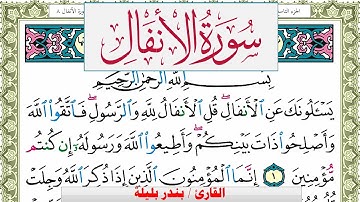 سُورَةُ الأَنفَالِ
بِسْمِ اللَّهِ الرَّحْمَٰنِ الرَّحِيمِ
يَسْـَٔلُونَكَ عَنِ الْأَنفَالِ ۖ قُلِ الْأَنفَالُ لِلَّهِ وَالرَّسُولِ ۖ فَاتَّقُوا اللَّهَ
وَأَصْلِحُوا ذَاتَ بَيْنِكُمْ ۖ وَأَطِيعُوا اللَّهَ وَرَسُولَهُ إِن كُنتُم
مُّؤْمِنِينَ ١ إِنَّمَا الْمُؤْمِنُونَ الَّذِينَ إِذَا ذُكِرَ اللَّهُ وَجِلَتْ
القارئ / بندر بليلة